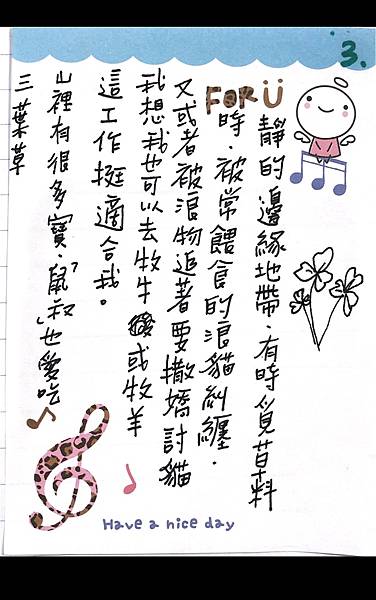 3.
FOR Ü
靜的邊緣地帶.有時覓草料
時.被常餵食的浪貓糾纏.
又或者被浪物追著要撒嬌討貓
我想我也可以去牧牛或牧羊
這工作挺適合我。
山裡有很多寶.「鼠叔」也愛吃
三葉草
Have a nice day